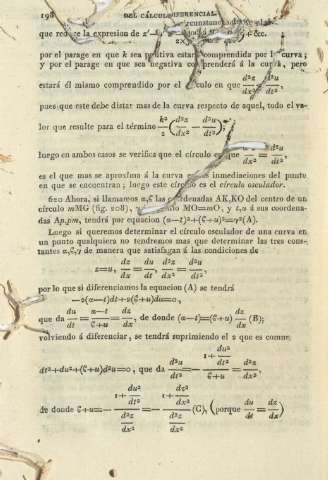 198 DEL CÁLCULO DIFERENCIAL
que la expresion de z'-
&c.
por el parage en que k sea estar comprendida por curva;
y por el parage en que sea negativa comprenderá á la curva, pero
estará él mismo comprendido por el en que
pues que este debe distar mas de la curva respecto de aquel, todo el va-
lor que resulte para el término k²/2 (d²z/dx² - d²u/dt²);
luego en ambos casos se verifica que el círculo en que = d²u/dt²,
es el que mas se aproxima á la curva inmediaciones del punto
en que se encuentran; luego este es el círculo osculador.
Ahora, si llamamos α,ϐ las coordenadas AK,KO del centro de un
círculo mMG (fig. 108), MO=mO, y t,u á sus coordena-
das Ap,pm, tendrá por equacion (α-t)²+(ϐ+u)²=r²(A).
Luego si queremos determinar el círculo osculador de una curva en
un punto qualquiera no tendremos mas que determinar las tres cons-
tantes α,ϐ,r de manera que satisfagan á las condiciones de
z=u, dz/dx = du/dt, d²z/dx² = d²u/dt²,
por lo que si diferenciamos la equacion (A) se tendrá
-2(α-t)dt+2(ϐ+u)du=0,
que da du/dt = α-t/ϐ+u = dz/dx, de donde (α-t)=(ϐ+u) dz/dx (B);
volviendo á diferenciar, se tendrá suprimiendo el 2 que es comun
dt²+du²+(ϐ+u)d²u=0, que da d²u/dt² = - (1+du²/dt²)/(ϐ+u) = d²z/dx²,
de donde ϐ+u=- (1+du²/dt²)/(d²z/dx²) = - (1+dz²/dx²)/(d²z/dx²) (C), (porque du/dt = dz/dx)